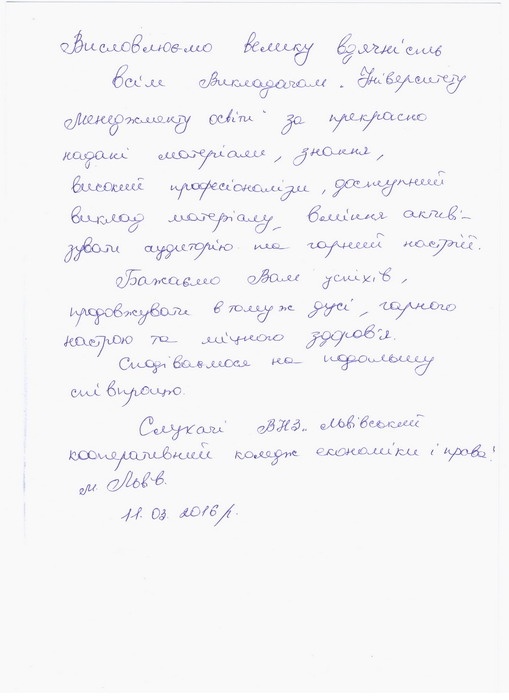 Висловлюємо велику вдячність
всім Викладачам. Університету
менеджменту освіти за прекрасно
надані матеріали, знання,
високий професіоналізм, доступний
виклад матеріалу, вміння активі-
зувати аудиторію та гарний настрій.
Бажаємо Вам успіхів,
продовжувати в тому ж дусі, гарного
настрою та міцного здоров'я.
Сподіваємося на подальшу
співпрацю.
Слухачі ВНЗ „Львівський
кооперативний коледж економіки і права"
м. Львів.
11.03.2016р.